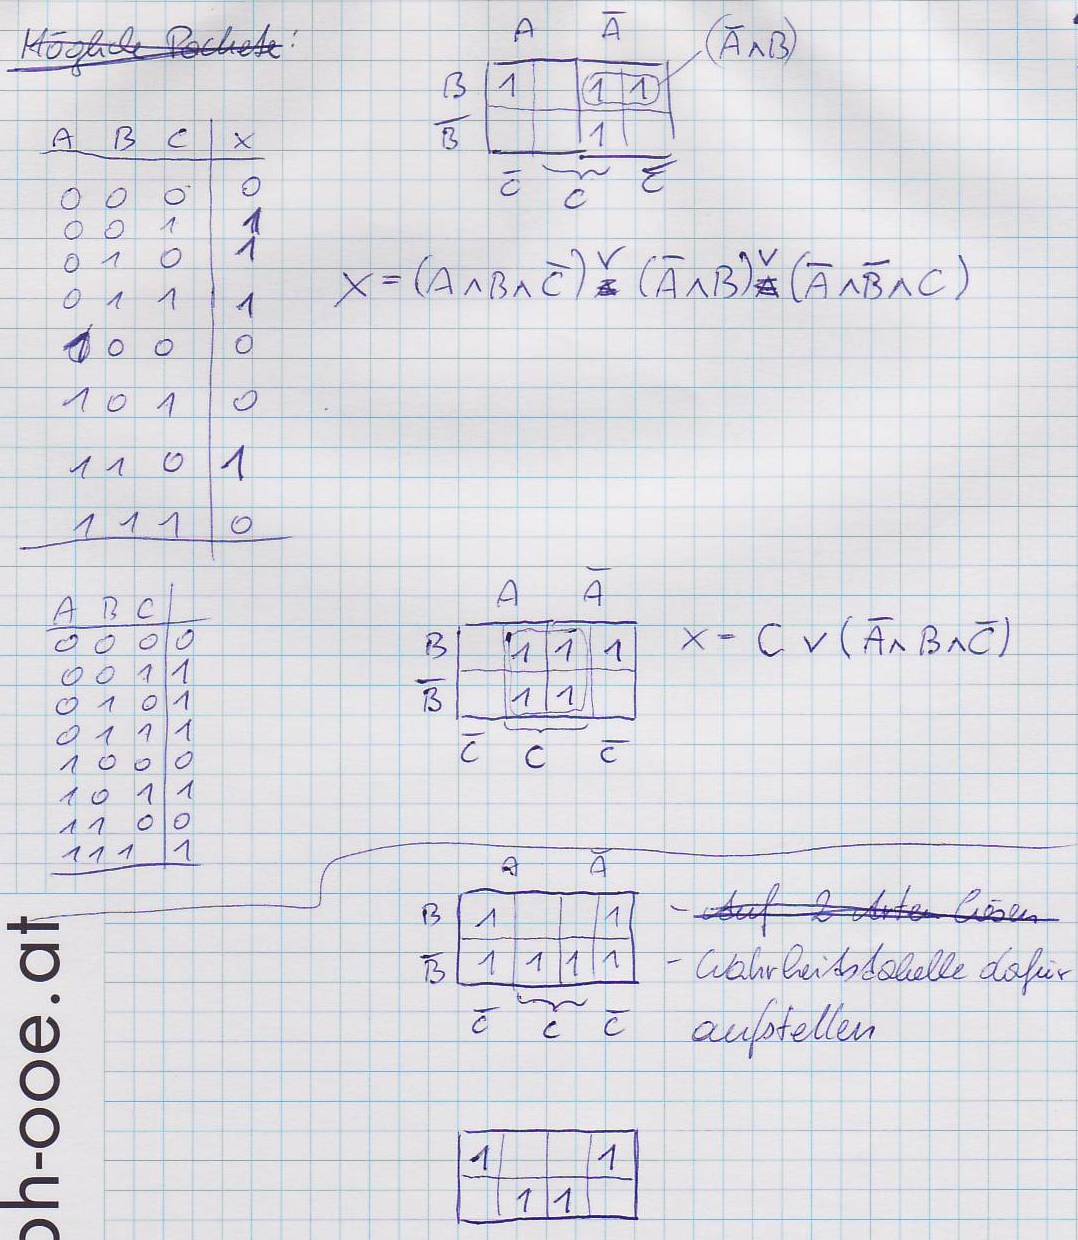 Mögliche Pachete:
A B C X
0 0 0 0
0 0 1 1
0 1 0 1
0 1 1 1
1 0 0 0
1 0 1 0
1 1 0 1
1 1 1 0
A A̅
(A̅∧B)
B 1 1 1
B̅ 1
C̅ C C̅
X = (A∧B∧C̅) ∨ (A̅∧B) ∨ (A̅∧B̅∧C)
A B C
0 0 0 0
0 0 1 1
0 1 0 1
0 1 1 1
1 0 0 0
1 0 1 1
1 1 0 0
1 1 1 1
A A̅
B 1 1 1
B̅ 1 1
C̅ C C̅
X = C ∨ (A̅∧B∧C̅)
A A̅
B 1 1
B̅ 1 1 1 1
C̅ C C̅
- Auf 2 Arten lösen
- Wahrheitstabelle dafür
aufstellen
1 1
1 1
ph-ooe.at